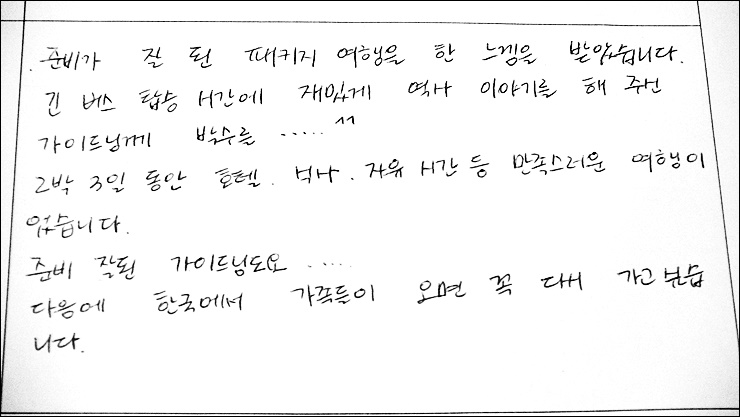 . 준비가 잘 된 패키지 여행을 한 느낌을 받았습니다.
긴 버스 탑승 시간에 재밌게 역사 이야기를 해 주신
가이드님께 박수를 ..... ^^
2박 3일 동안 호텔. 식사. 자유 시간 등 만족스러운 여행이
었습니다.
준비 잘된 가이드님도요 .....
다음에 한국에서 가족들이 오면 꼭 다시 가고 싶습
니다.